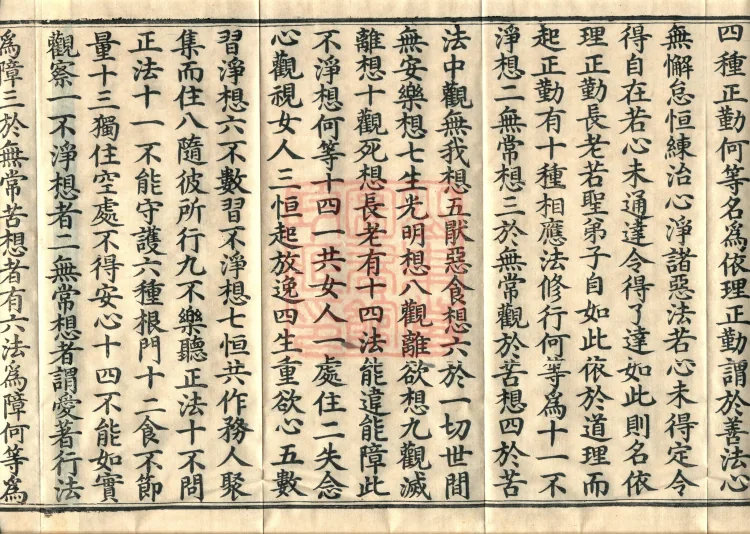 四種正勤何等名爲依理正勤謂於善法心
無懈怠恒練治心淨諸惡法若心未得定令
得自在若心未通達令得了達如此則名依
理正勤長老若聖弟子自如此依於道理而
起正勤有十種相應法修行何等爲十一不
淨想二無常想三於無常觀於苦想四於苦
法中觀無我想五猒惡食想六於一切世間
無安樂想七生光明想八觀離欲想九觀滅
離想十觀死想長老有十四法能違能障此
不淨想何等十四一共女人一處住二失念
心觀視女人三恒起放逸四生重欲心五數
習淨想六不數習不淨想七恒共作務人聚
集而住八隨彼所行九不樂聽正法十不問
正法十一不能守護六種根門十二食不節
量十三獨住空處不得安心十四不能如實
觀察一不淨想者二無常想者謂愛著行法
爲障三於無常苦想者有六法爲障何等爲